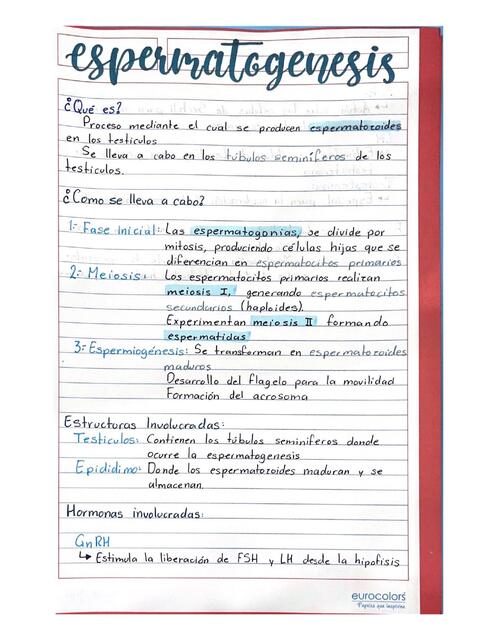 espermatogenesis
¿Qué es?
Proceso mediante el cual se producen espermatozoides
en los testículos
Se lleva a cabo en los túbulos seminíferos de los
testículos.
¿Como se lleva a cabo?
1.- Fase Inicial: Las espermatogonias, se divide por
mitosis, produciendo células hijas que se
diferencian en espermatocitos primarios
2.- Meiosis: Los espermatocitos primarios realizan
meiosis I, generando espermatocitos
secundarios (haploides).
Experimentan meiosis II formando
espermatidas
3.- Espermiogénesis: Se transforman en espermatozoides
maduros
Desarrollo del flagelo para la movilidad
Formación del acrosoma
Estructuras Involucradas:
Testículos: Contienen los túbulos seminíferos donde
ocurre la espermatogenesis
Epidídimo: Donde los espermatozoides maduran y se
almacenan.
Hormonas involucradas:
GnRH
↳ Estimula la liberación de FSH y LH desde la hipofisis
eurocolors
Papeles que inspiran